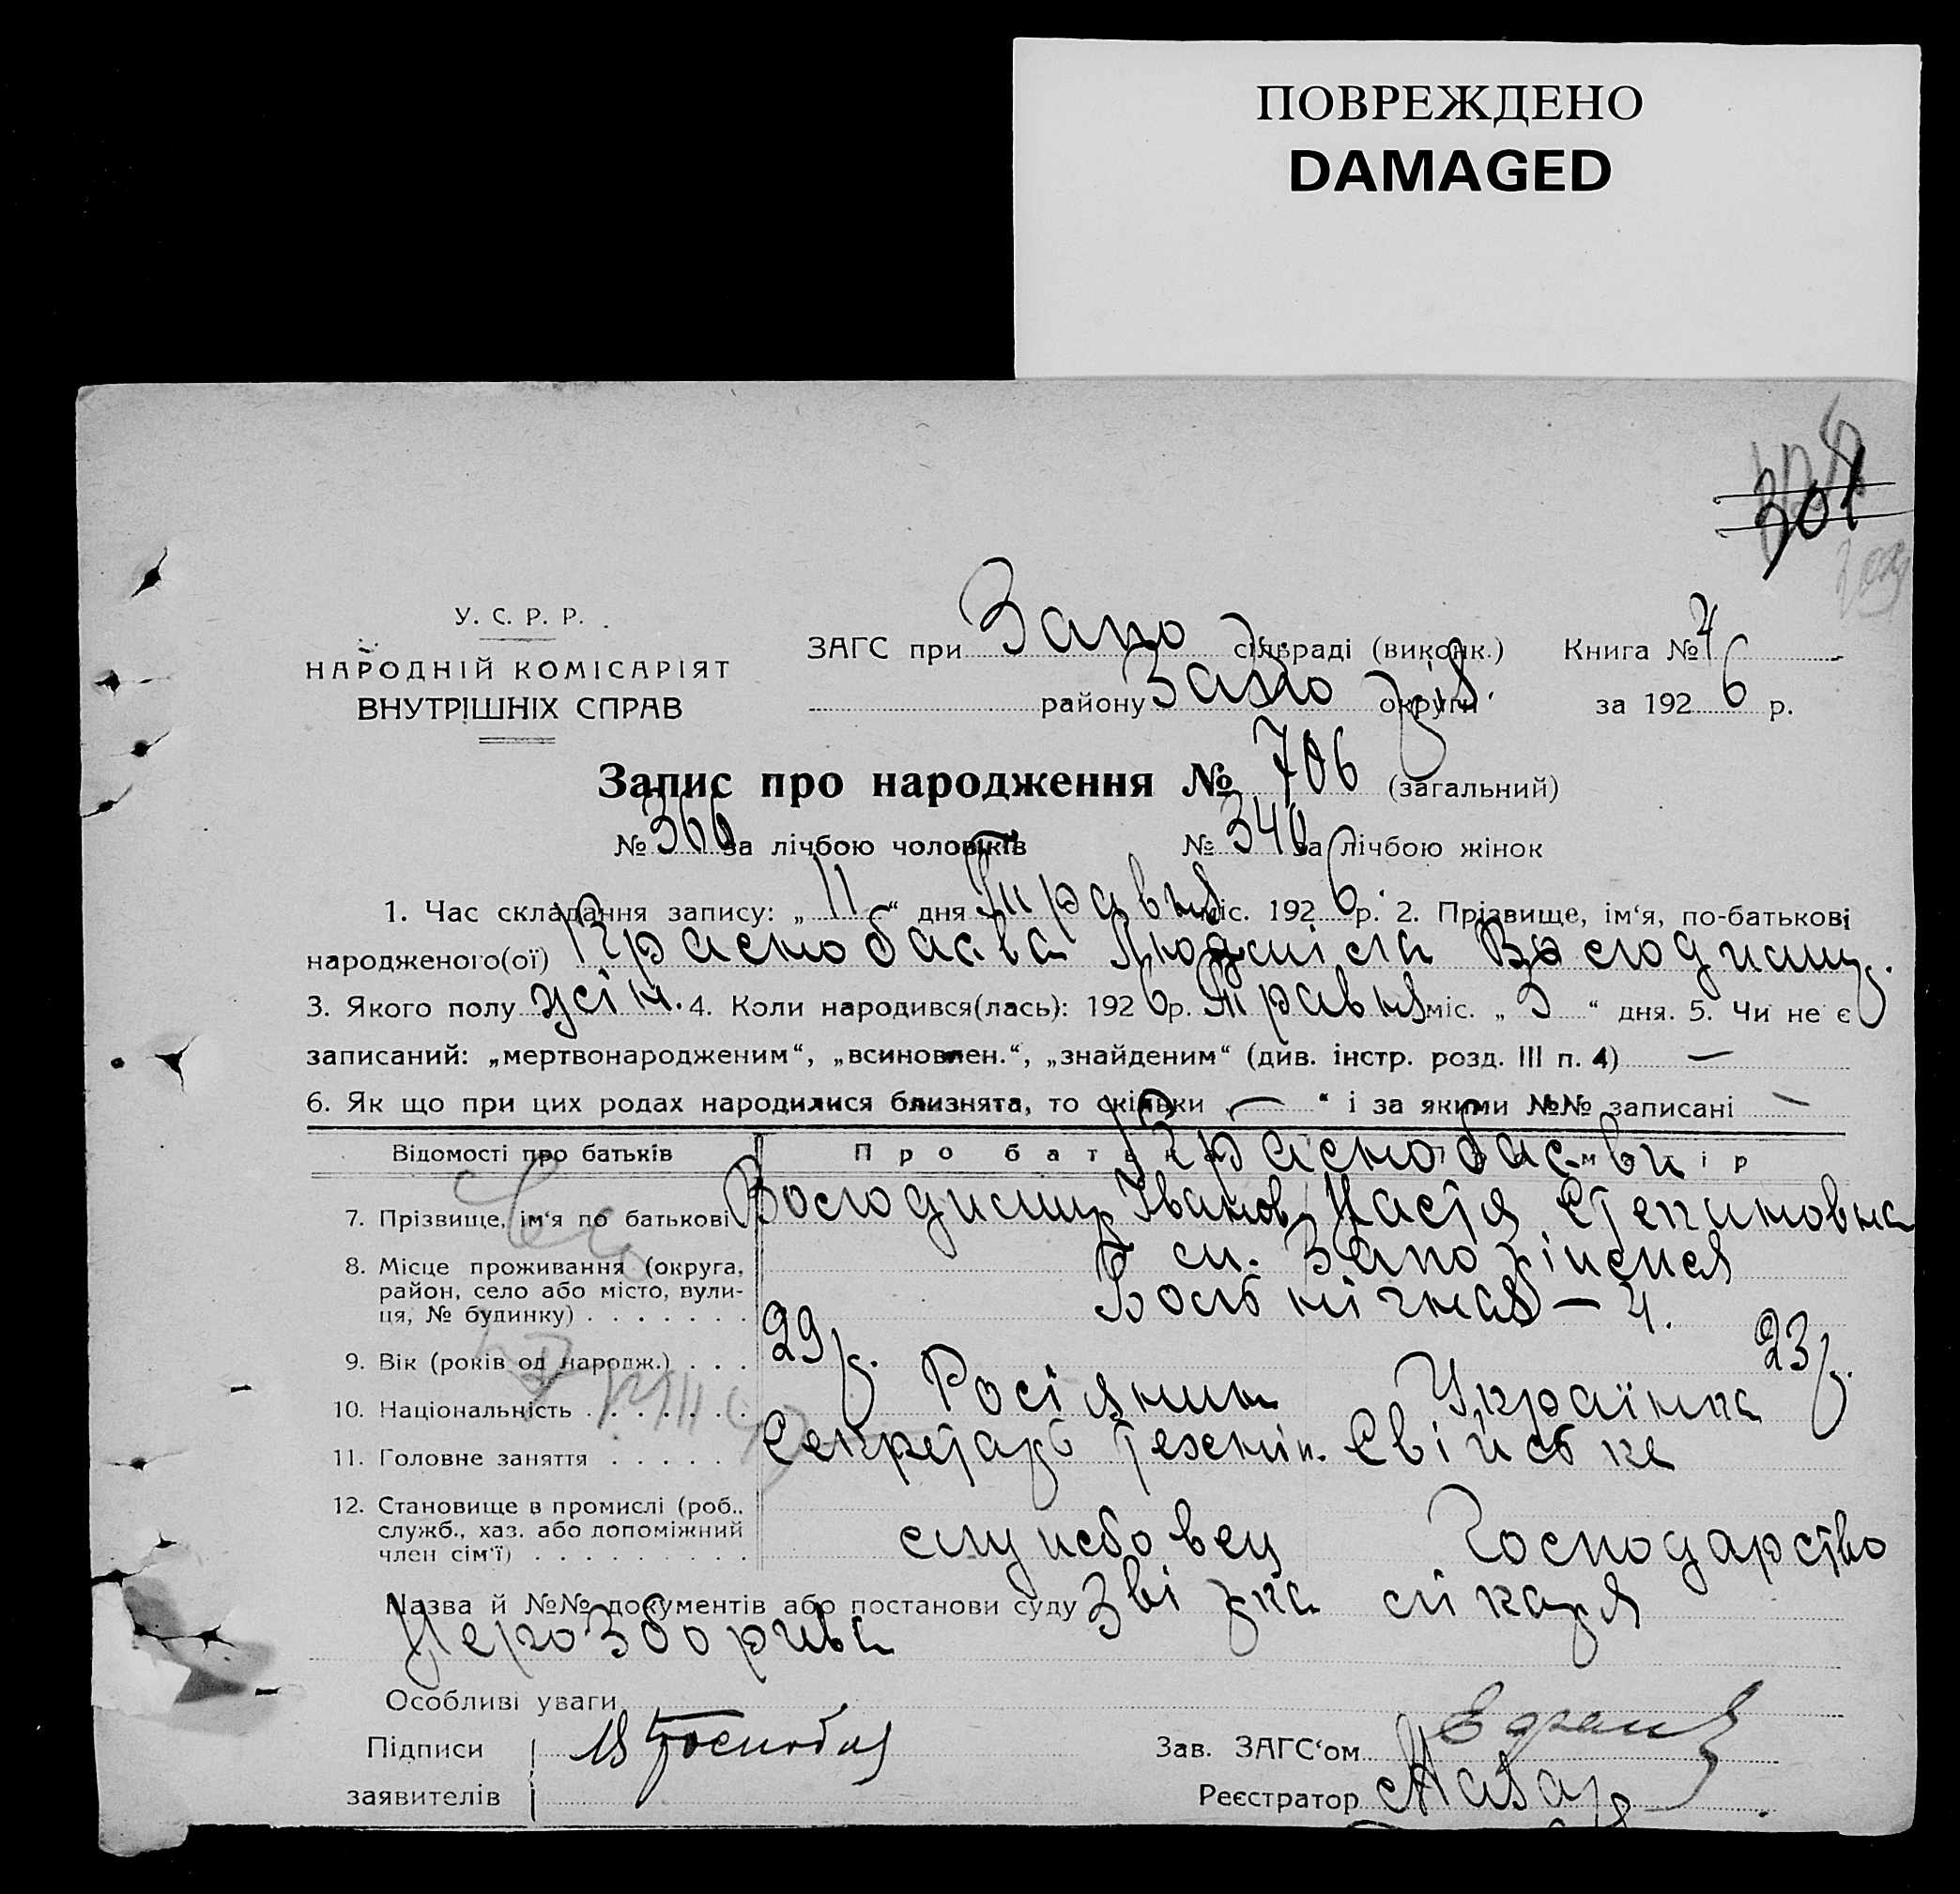 ПОВРЕЖДЕНО
DAMAGED
301
У. С. Р. Р.
НАРОДНІЙ КОМІСАРІЯТ
ВНУТРІШНІХ СПРАВ
ЗАГС при Запо сільраді (виконк.) Книга №
району Запо округи за 1926 р.
Запис про народження № 706 (загальний)
№ 366 за лічбою чоловіків № 340 за лічбою жінок
1. Час складання запису: „ 11 “ дня Травня міс. 1926 р. 2. Прізвище, ім‘я, по-батькові
народженого(ої) Краснобаєва Людміла Володимир.
3. Якого полу жін. 4. Коли народився(лась): 1926 р. Травня міс. „ 3 “ дня. 5. Чи не є
записаний: „мертвонародженим“, „всиновлен.“, „знайденим“ (див. інстр. розд. III п. 4) —
6. Як що при цих родах народилися близнята, то скільки „ — “ і за якими №№ записані —
Відомості про батьків Про батька Про матір
Краснобаєви
7. Прізвище, ім‘я по батькові Володимир Іванов. Настя Степановна
8. Місце проживання (округа, район, село або місто, вули-ця, № будинку) . . . . . . . м. Запоріжжя
Больнічная — 4.
9. Вік (років од народж.) . . . 29 р. 23 р.
10. Національність . . . . . . . Росіянин Українка
11. Головне заняття . . . . . . Секретарь Технік. Свійське
12. Становище в промислі (роб., служб., хаз. або допоміжний член сім‘ї) . . . . . . . . . . службовец Господарство
Назва й №№ документів або постанови суду Звізка лікаря
Особливі уваги
Підписи заявителів
Зав. ЗАГС‘ом
Реєстратор